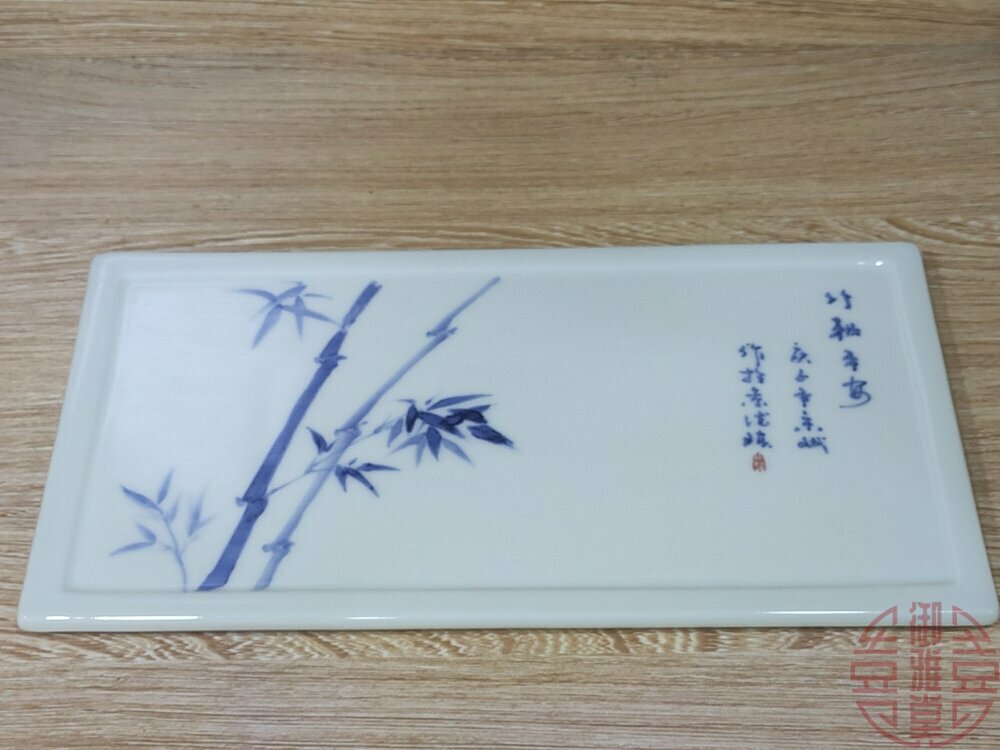 竹報平安
庚子年京城
作於景德鎮
御雅堂